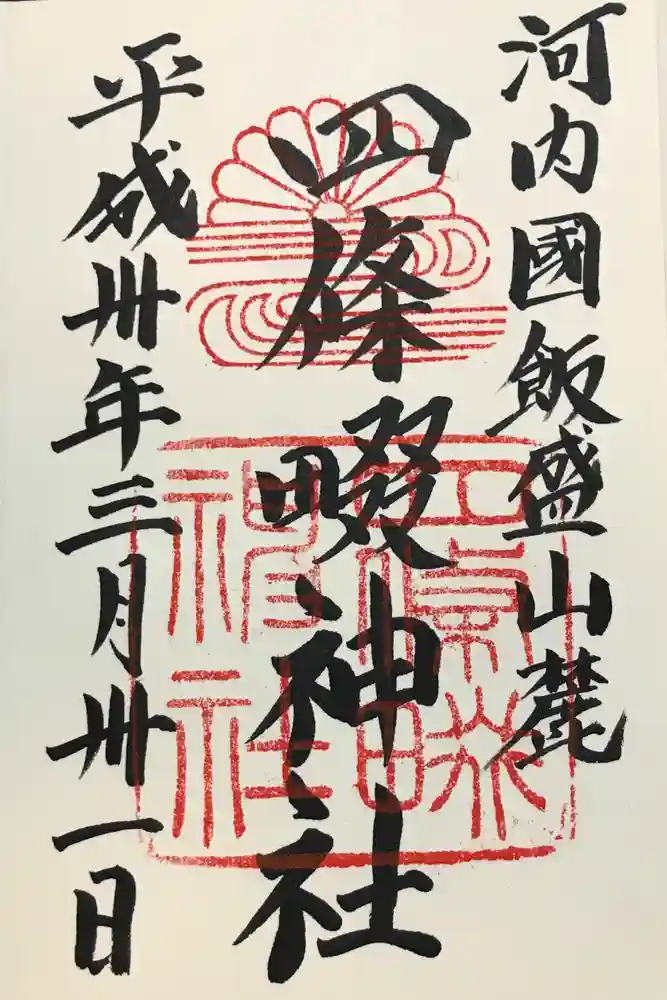 河内國飯盛山麓
四條畷神社
平成卅年三月卅一日